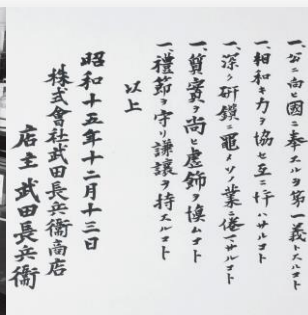 一、公ニ向ヒ國ニ奉スルヲ第一義トスルコト
一、相和キ力ヲ協セ互ニ忤ハサルコト
一、深ク研鑽ニ黽メソノ業ニ倦マサルコト
一、質實ヲ尚ヒ虛飾ヲ慎ムコト
一、禮節ヲ守リ謙讓ヲ持スルコト
以上
昭和十五年十二月十三日
株式會社武田長兵衞商店
店主 武田長兵衞